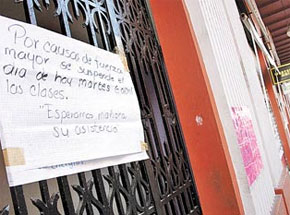 Por causas de fuerza
mayor se suspende el
día de hoy martes
las clases.
"Esperamos mañana
su asistencia